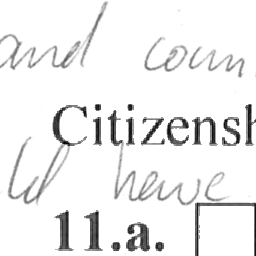 and coun
Citizensh
ld have
11.a.